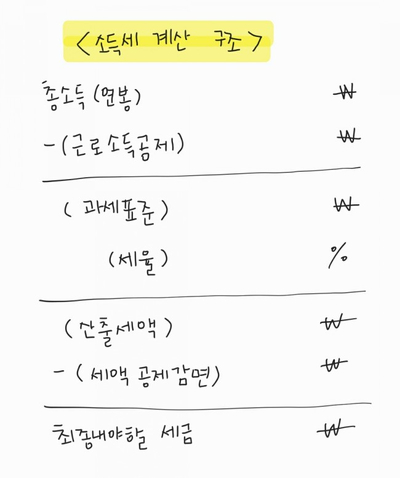 <소득세 계산 구조>
총소득(연봉) ₩
-(근로소득공제) ₩
(과세표준) ₩
(세율) %
(산출세액) ₩
-(세액 공제감면) ₩
최종내야할 세금 ₩